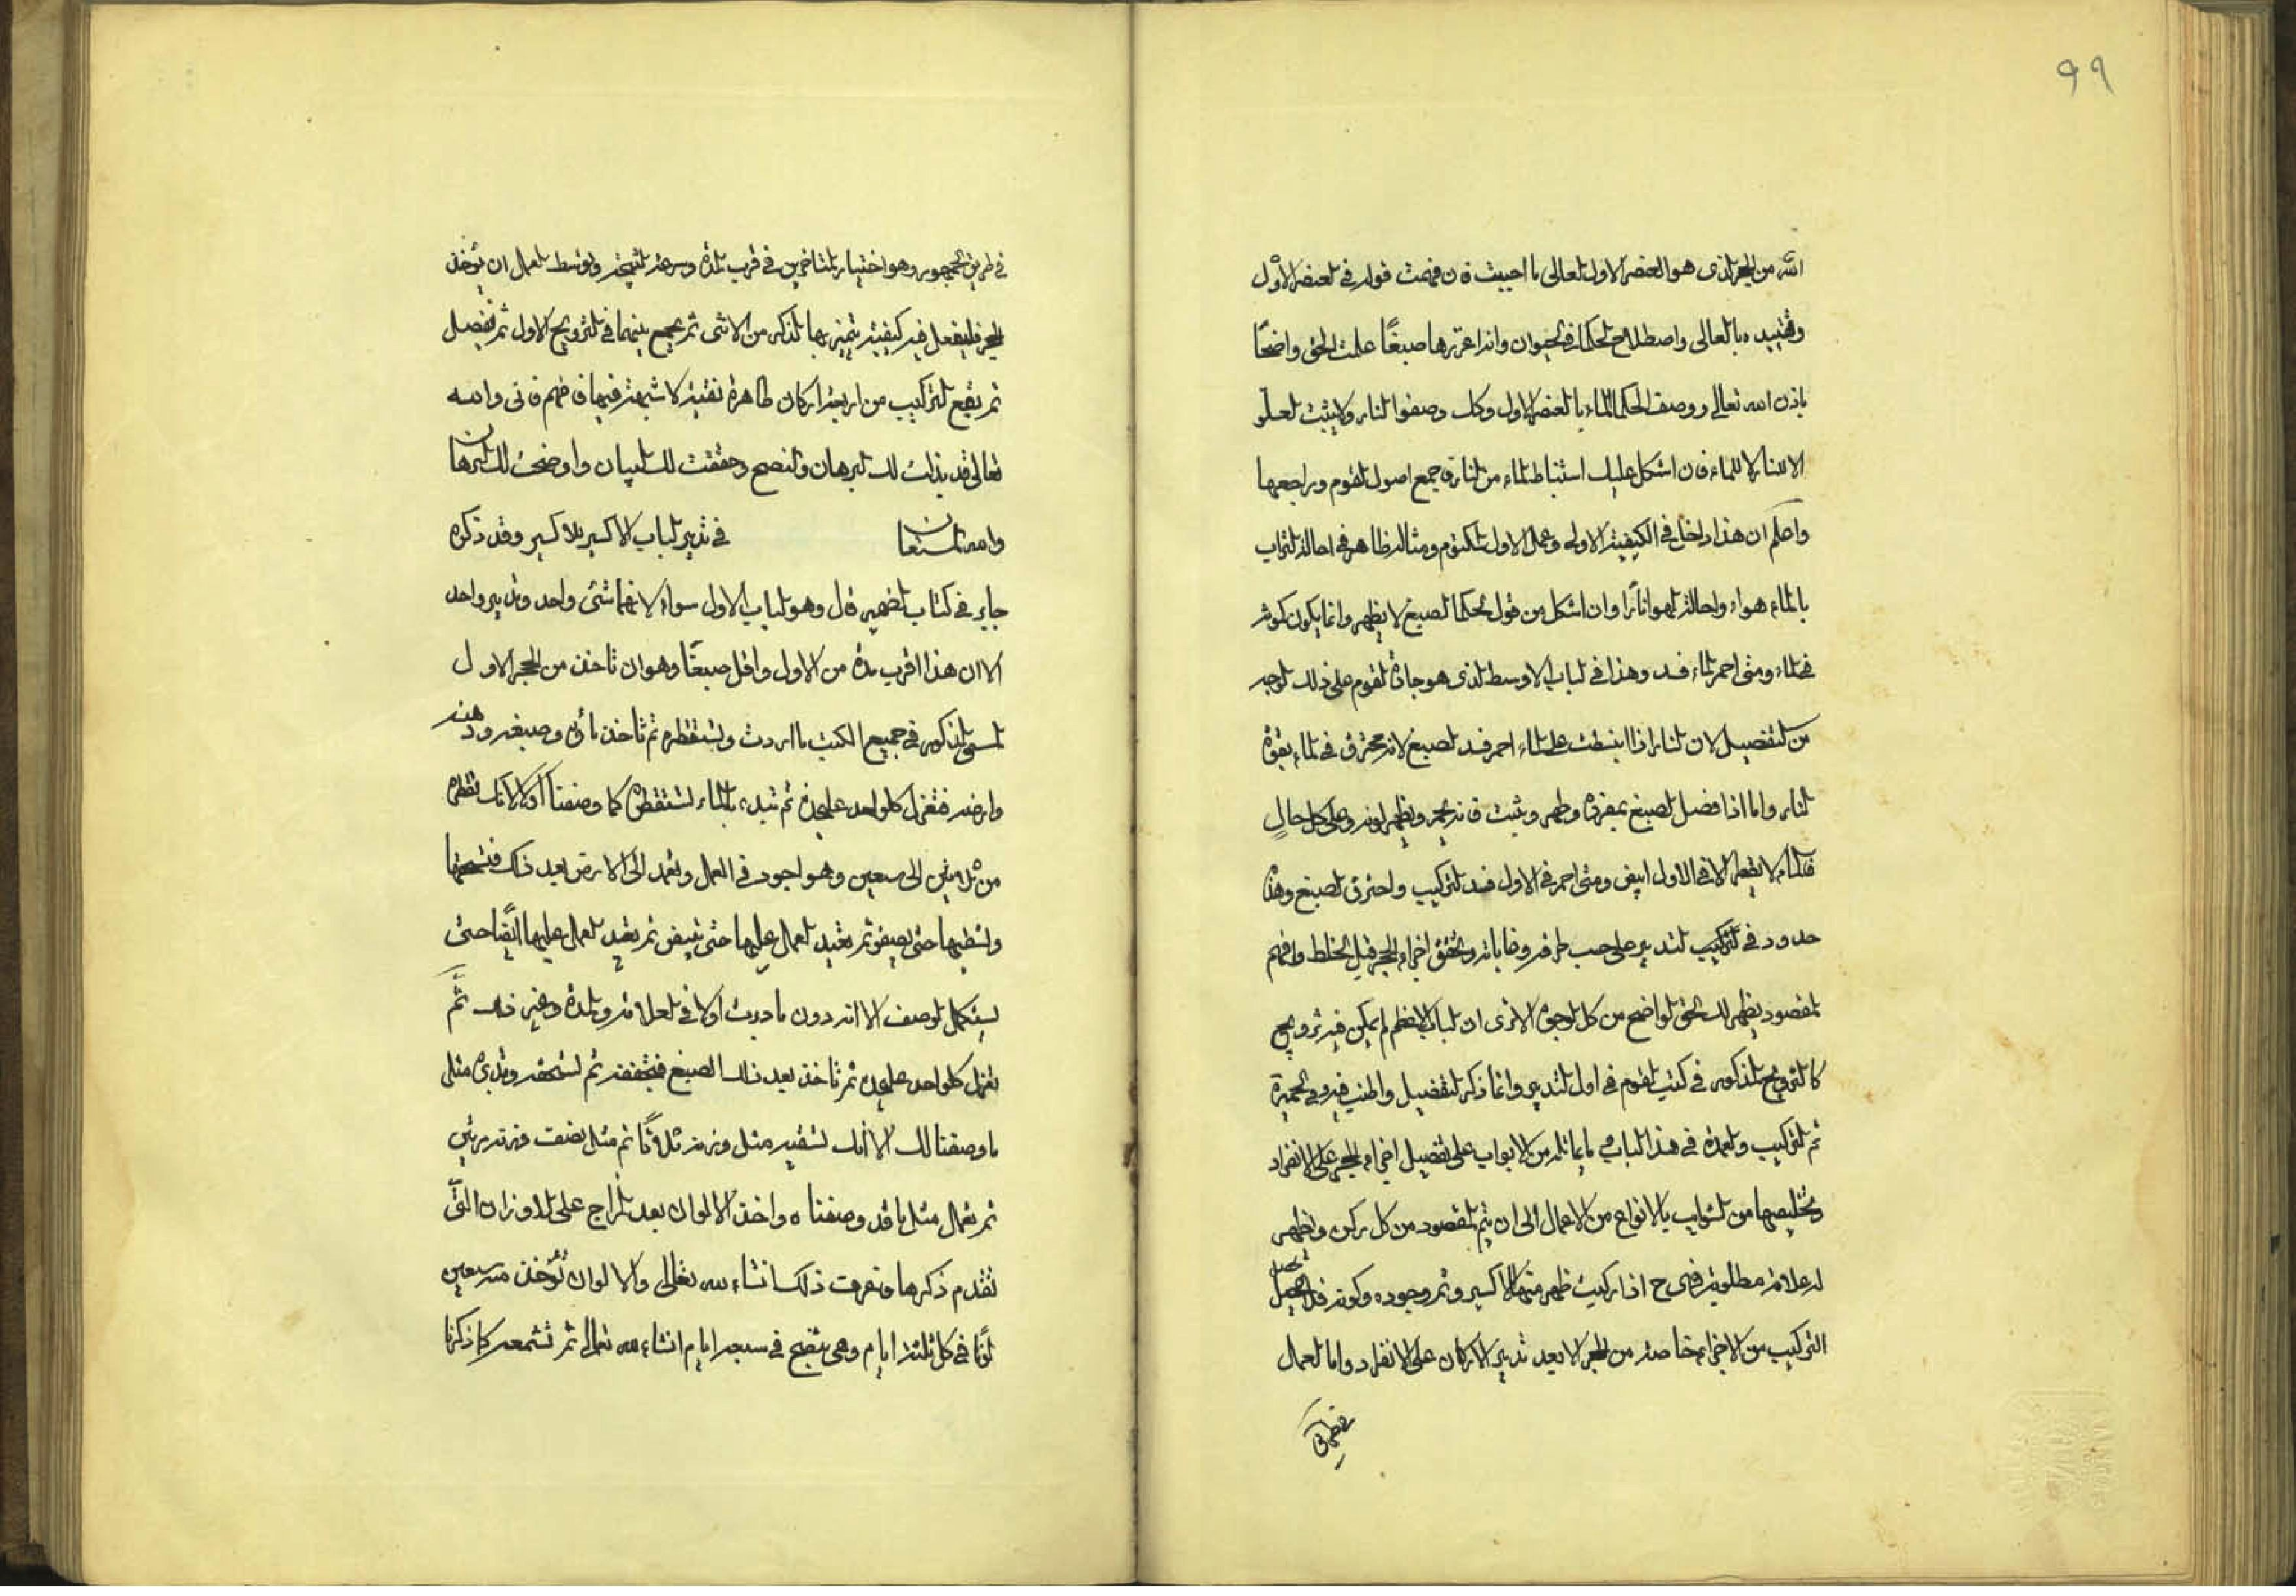 ٩٩
الله من الحجر الذى هو العنصر الاول العالى ما احببت فان فهمت قوله فى العنصر الاول
وتقييده بالعالى واصطلاح الحكما فى الحيوان واذا عزتها صبغًا علمت الحق واضحًا
باذن الله تعالى ووصف الحكما الماء بالعنصر الاول وكك وصفوا النار ولا يثبت العلو
الا للنار لا للماء فان اشكل عليك استنباط الماء من النار فاجمع اصول القوم وراجعها
واعلم ان هذا داخل فى الكيفية الاولى وعمل الاول المكتوم ومثاله ظاهر فى احالة التراب
بالماء هواء واحالة الهوا نارًا وان اشكل من قول الحكما الصبغ لا يظهر وانما يكون كونه
فى الماء ومتى احمر الماء فسد وهذا فى الباب الاوسط الذى هو جادة القوم على ذلك الوجه
من التفصيل لان النار اذا انبسطت على الماء احمر فسد الصبغ لانه محترق فى الماء بقوة
النار واما اذا فصل الصبغ بمفرده وطهر وثبت فانه يحمر ويظهر لونه وعلى كل حالٍ
فالماء لا يقطر الا فى الاول ابيض ومتى احمر فى الاول فسد التركيب واحترق الصبغ وهذه
حدود فى التركيب التدبير على حسب طرقه وغاياته وتحقق اجزاء الحجر قبل الخلط وافهم
المقصود يظهر لك الحق الواضح من كل الوجوه الا ترى ان الباب الاعظم لم يكن فيه تزويج
كالتزويج المذكور فى كتب القوم فى اول التدبير وانما ذكر التفصيل واطنب فيه وفى الخميرة
ثم التركيب والعمدة فى هذا الباب وما يماثله من الابواب على تفصيل اجزاء الحجر على الانفراد
وتخليصها من الشوايب بالانواع من الاعمال الى ان يتم المقصود من كل ركن وتظهر
له علامة مطلوبة فهى ح اذا ركبت ظهر منها الاكسير وتم وجوده وكونه فلا يحصل
التركيب من الاجزاء خاصة من الحجر الا بعد تدبير الاركان على الانفراد واما العمال
فى طريق الجمهور وهو اختيار المتاخرين فى قرب المدة وسرعة النتيجة وتوسط العمل ان يؤخذ
الحجر فليفعل فيه كيفية يتميز بها الذكر من الانثى ثم يجمع بينهما فى التزويج الاول ثم تفصيل
ثم يقع التركيب من اربعة اركان طاهرة نقية لا شبهة فيها فافهم فانى والله
تعالى قد بذلت لك البرهان والنصح وحققت لك البيان واوضحت لك البرهان
والله المستعان فى تدبير الباب الاكسير بلا اكسير وقد ذكره
جابر فى كتاب الضمير قال وهو الباب الاول سواء لانهما شئ واحد وتدبير واحد
الا ان هذا اقرب مدة من الاول واقل صبغًا وهو ان تاخذ من الحجر الاول
المسمى المذكور فى جميع الكتب ما اردت وتستقطره ثم تاخذ ماؤه وصبغه ودهنه
وارضه فتعزل كل واحد على حدة ثم تبدء بالماء لتستقطره كما وصفنا اولًا الا انك تقطره
من ثلاثين الى سبعين وهو اجود فى العمل وتعمد الى الارض بعد ذلك فتسحقها
وتشطبها حتى تصفو ثم تعيد العمل عليها حتى تبيض ثم تعيد العمل عليها ايضًا حتى
ليستكمل الوصف الا انه دون ما دبرت اولا فى العلامة والمدة وغير ذلك ثم
تعزل كل واحد على حدة ثم تاخذ بعد ذلك الصبغ فتجففه ثم لتسحقه وتدبره مثل
ما وصفنا لك الا انك تسقيه مثل وزنه ثلاثًا ثم مثل نصف وزنه مرتين
ثم تعمل مثل ما قد وصفناه واخذ الالوان بعد المزاج على الاوزان التى
تقدم ذكرها وتعرف ذلك انشاء الله تعالى والالوان تؤخذ من سبعين
لونًا فى كل ثلثة ايام وهى تقبح فى سبعة ايام انشاء الله تعالى ثم تشمعه كما ذكرنا